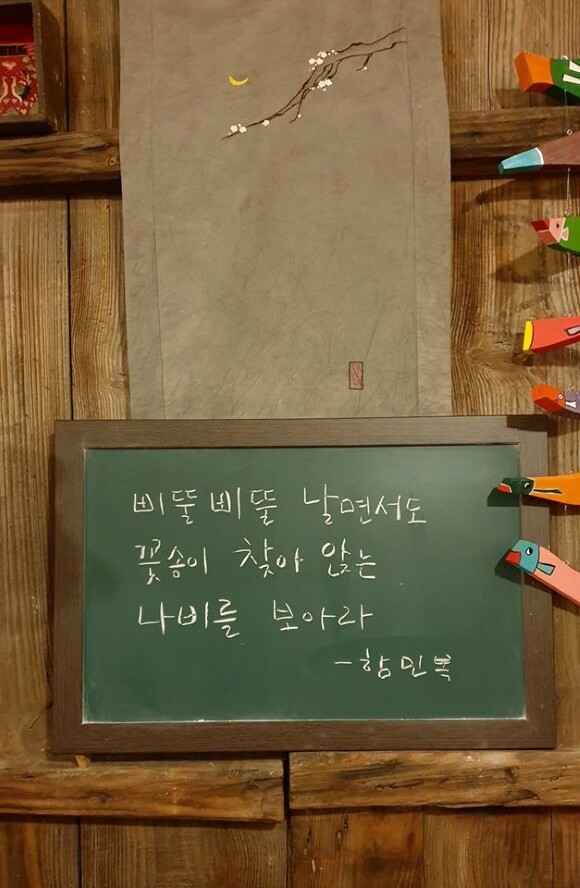 삐뚤삐뚤 날면서도
꽃송이 찾아 앉는
나비를 보아라
-함민복